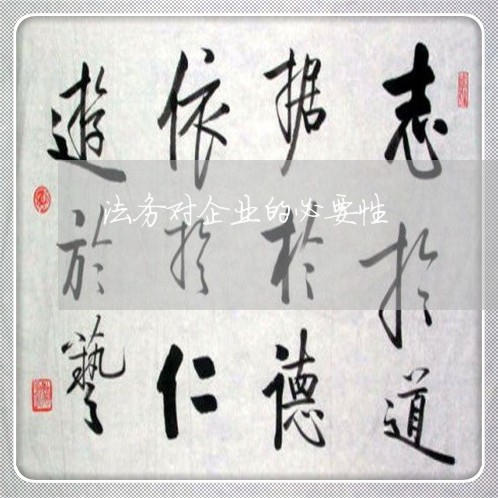 志於道
据於德
依於仁
遊於藝
法务对企业的必要性